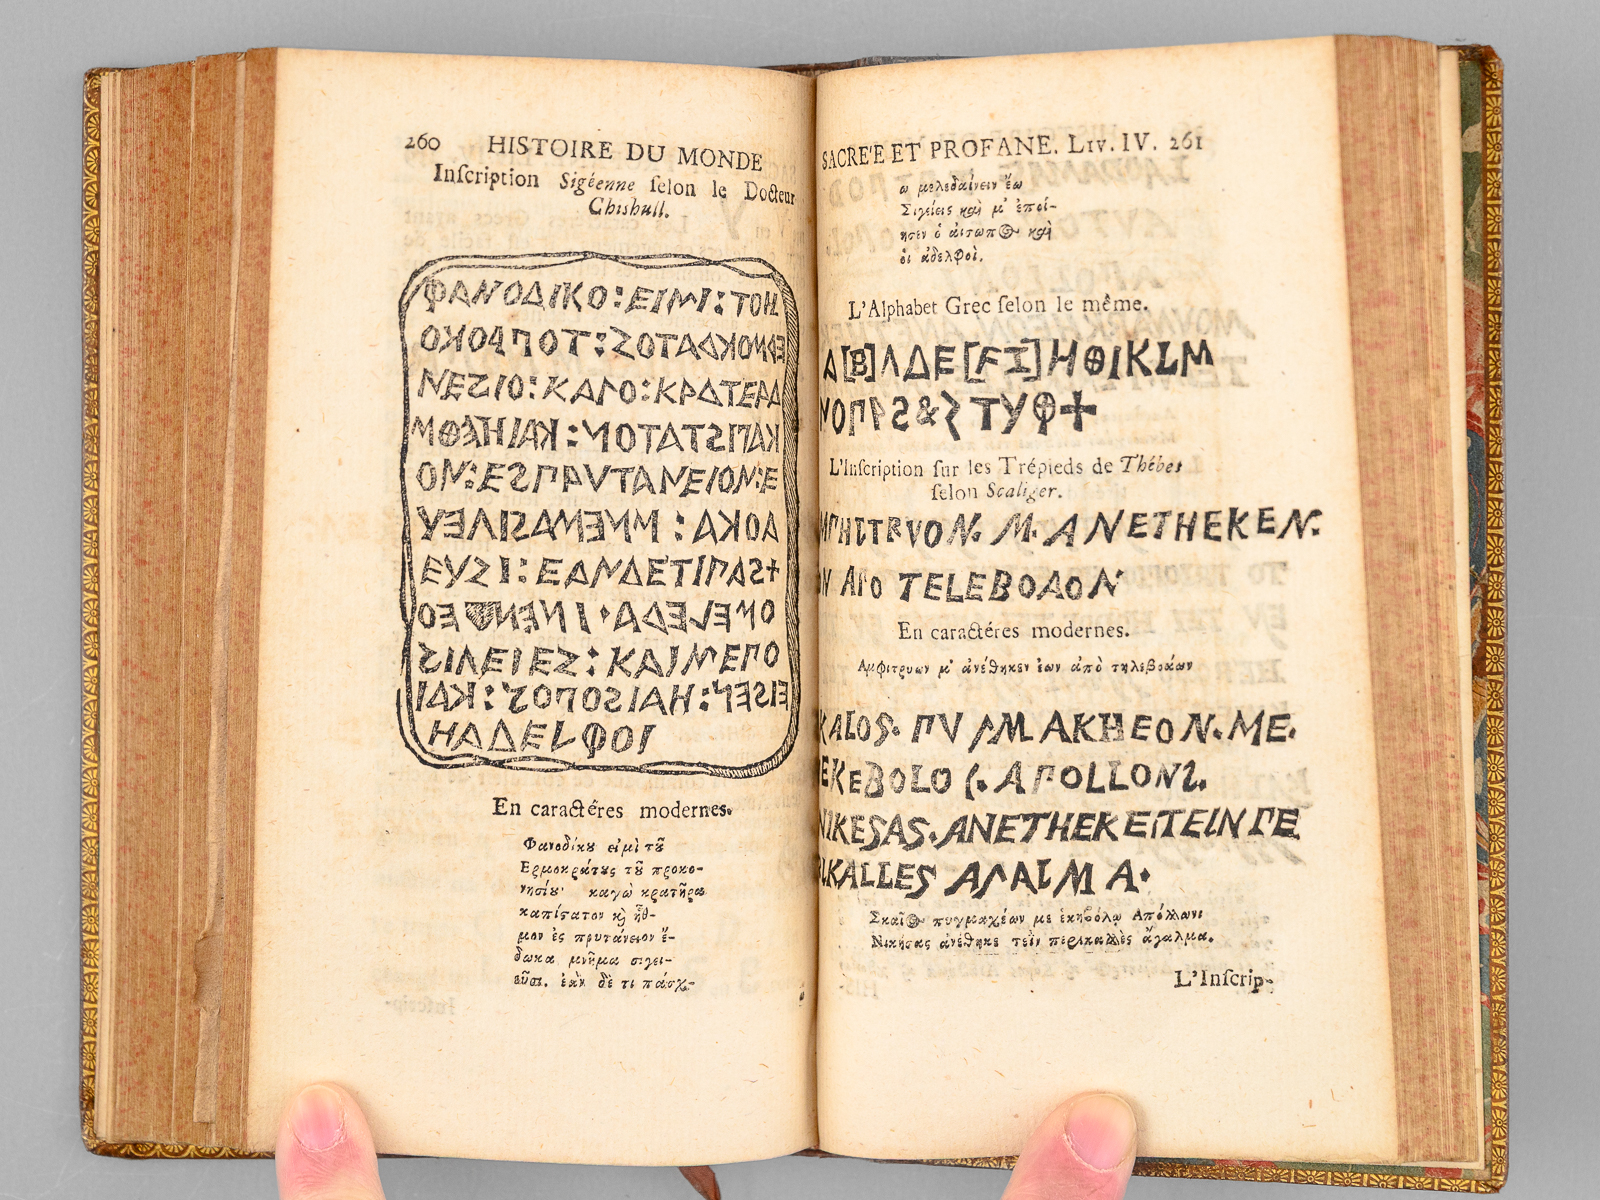 260 HISTOIRE DU MONDE
Inſcription Sigéenne ſelon le Docteur
Chishull.
ΦΑΝΟΔΙΚΟ:ΕΙΜΙ:ΤΟΗ
ΕΡΜΟΚΡΑΤΟΣ:ΤΟΠΡΟΚΟ
ΝΕΣΙΟ:ΚΑΓΟ:ΚΡΑΤΕΡΑ
ΚΑΠΣΤΑΤΟΝ:ΚΑΙΗΕΘΜ
ΟΝ:ΕΣΠΡΥΤΑΝΕΙΟΝ:Ε
ΔΟΚΑ:ΜΝΕΜΑΣΙΓΕΥ
ΕΥΣΙ:ΕΑΝΔΕΤΙΠΑΣ+
ΟΜΕΛΕΔΑ·ΙΝΕΝ ΕΟ
ΣΙΓΕΙΕΣ:ΚΑΙΜΕΠΟ
ΕΙΣΕΝ:ΗΑΙΣΟΠΟΣ:ΚΑΙ
ΗΑΔΕLΦΟΙ
En caractéres modernes.
Φανοδίκȣ εἰμὶ τȣ͂
Ερμοκράτȣς τȣ͂ προκο-
νησίȣ· καγὼ κρατῆρα
καπίϛατον κỳ ἦθ-
μον ἐς πρυτάνειον ἔ-
δωκα μνῆμα σιγει-
εῦσι. ἐὰν δέ τι πάσχ-
SACRE'E ET PROFANE. LIV. IV. 261
ω μελεδαίνειν ἔω
Σιγείεις καὶ μ' ἐποί-
ησεν ὁ αἴσωπος καὶ
οἱ ἀδελφοὶ.
L'Alphabet Grec ſelon le même.
Α[Β]ΛΔΕ[FI]ΗΘΙΚLΜ
ΝΟΠΡS&Σ ΤΥΦ+
L'Inſcription ſur les Trépieds de Thébes
ſelon Scaliger.
ΜΠΗΙΤRVON. M. ANETHEKEN.
ΟΝ ΑΓΟ TELEBOAON
En caractéres modernes.
Αμφιτρυων μ' ἀνέθηκεν ἐων ἀπὸ τηλεβοάων
KAIOS. ΠV ΓΜ AKHEON. ME.
EKEBOLOI. AΠOLLONI.
NIKESAS. ANETHEKEITEINΠE
RIKALLES AΓALM A.
Σκαῖος πυγμαχέων με ἑκηβόλῳ Απόλλωνι
Νικήσας ἀνέθηκε τεῒν περικαλλὲς ἄγαλμα.
L'Inſcrip-